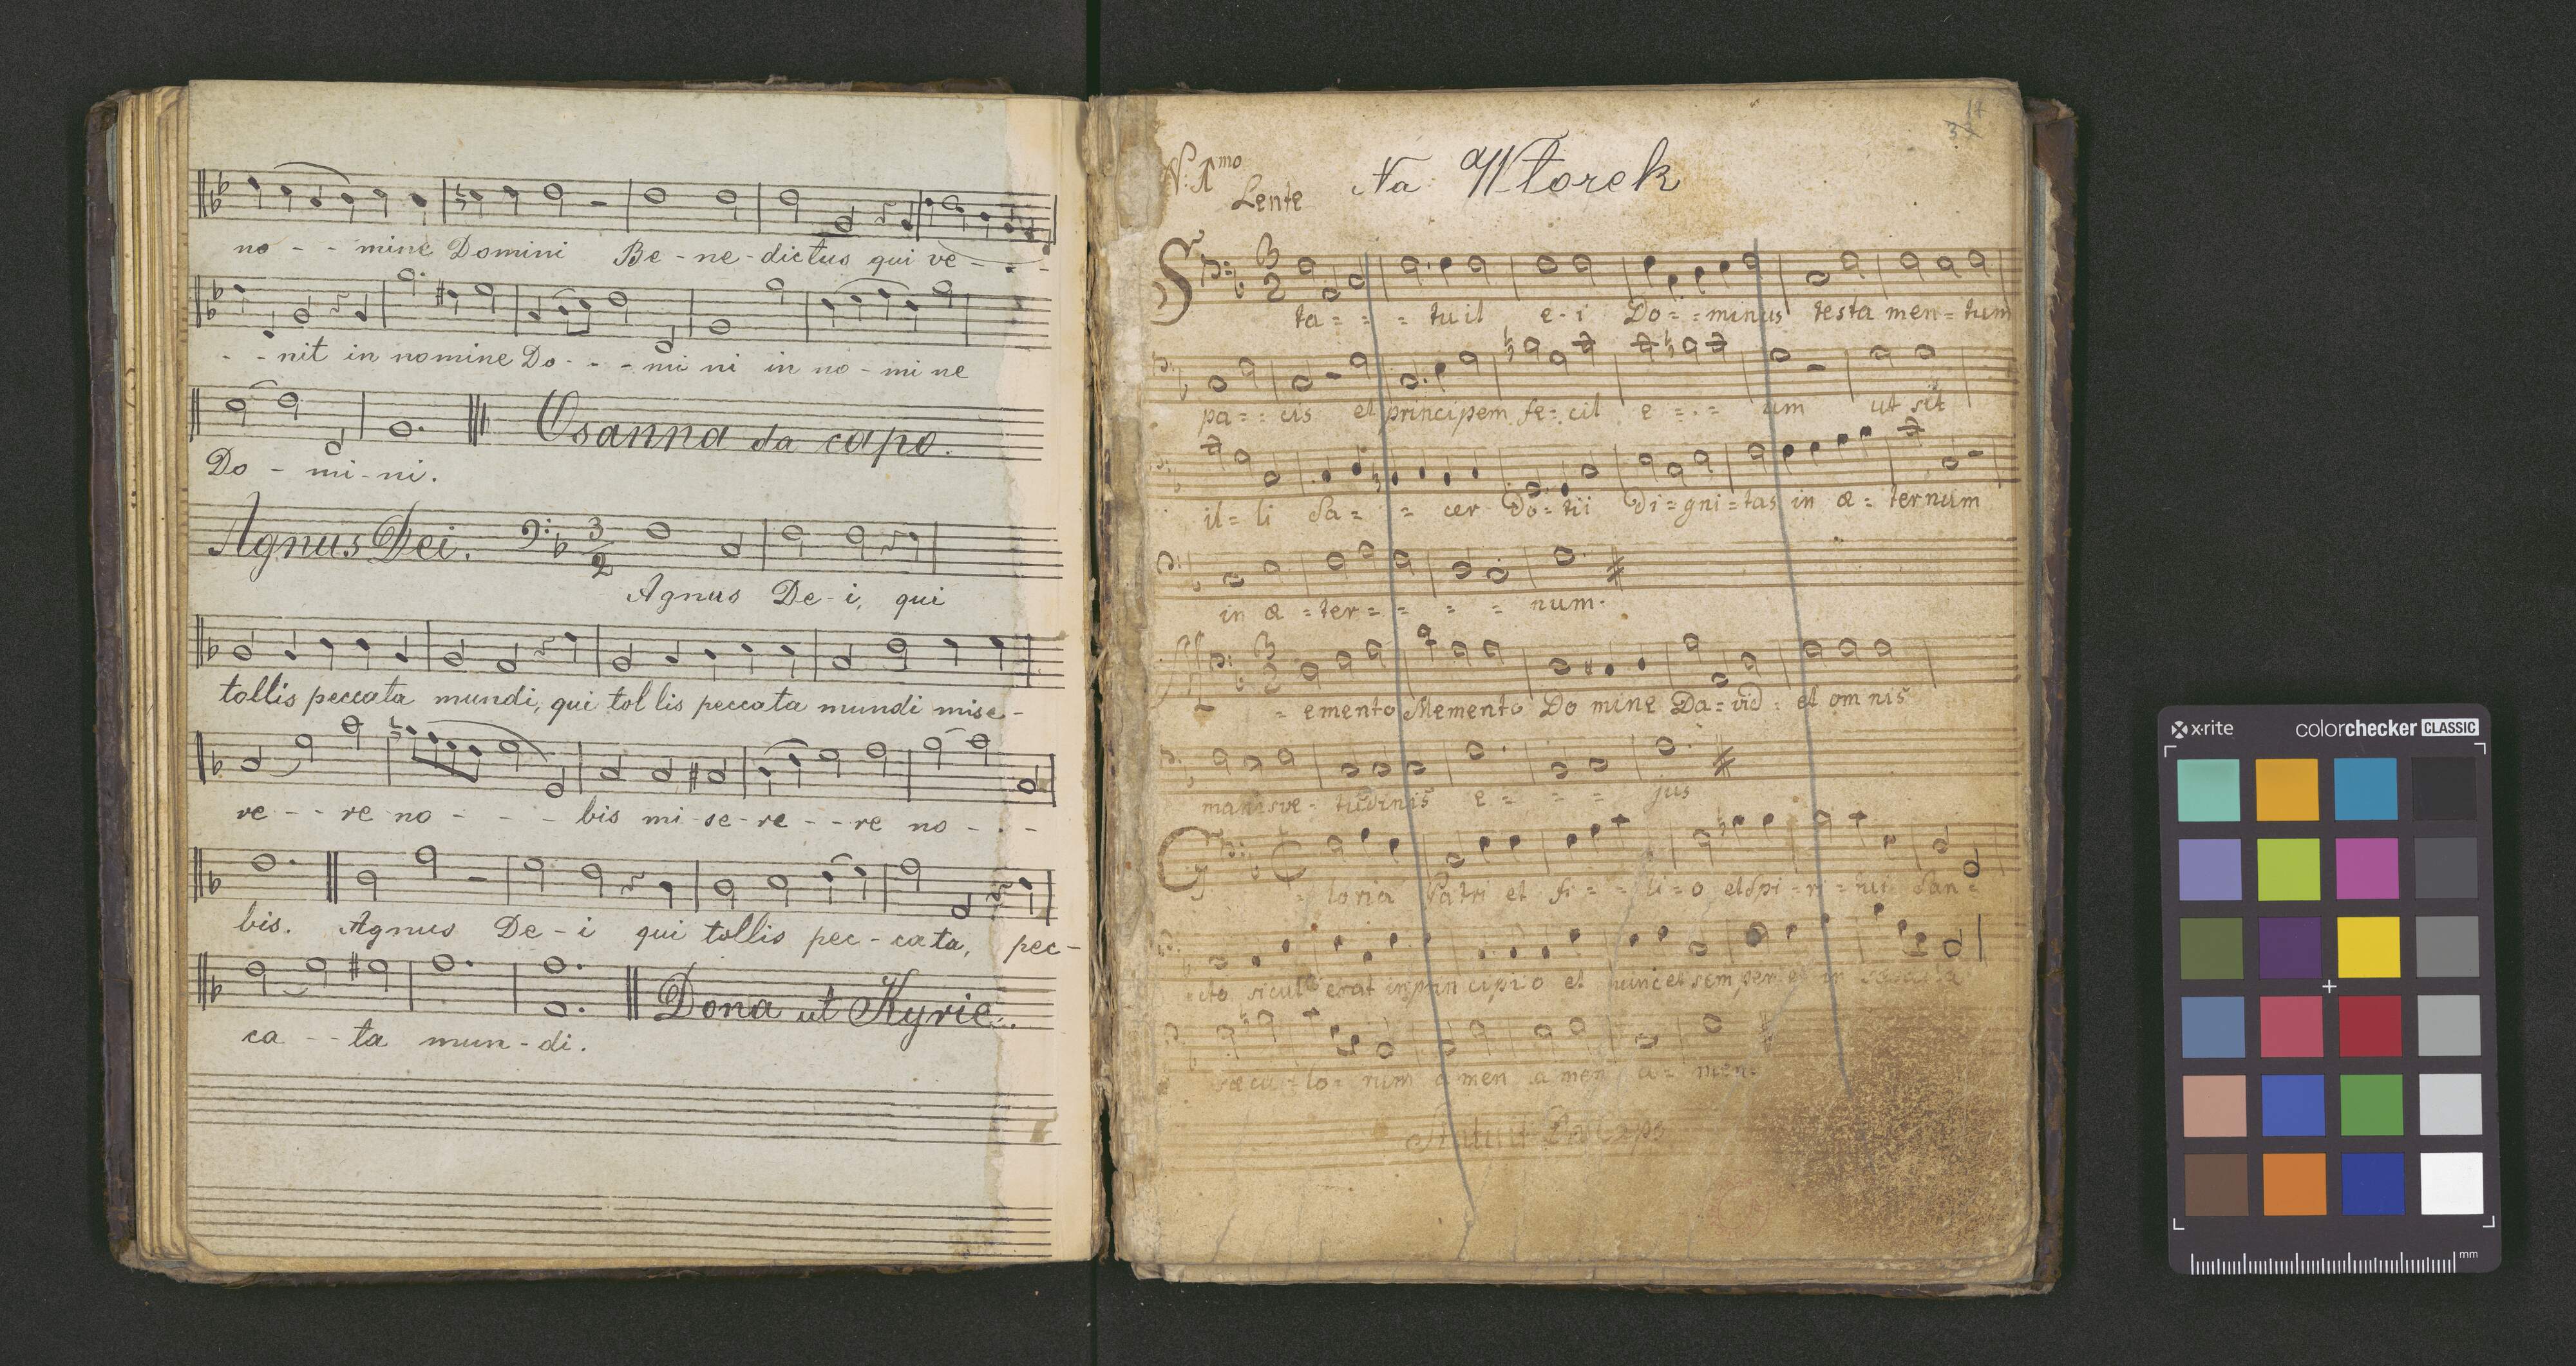 no - - mine Domini Be - ne - dictus qui ve - - -
- - nit in nomine Do - - - mi ni in no - mi ne
Osanna da capo.
Do - mi - ni.
Agnus Dei. 3 2
Agnus De - i, qui
tollis peccata mundi, qui tol lis peccata mundi mise -
re - - re no - - - bis mi - se - re - - re no - - -
bis. Agnus De - i qui tollis pec - cata, pec -
ca - - ta mun - di.
Dona ut Kyrie.
17
N. 1mo
Lente
Na Wtorek
S 3 2
ta = = = tuit e = i Do = = minus testa men = tum
pa = = cis et principem fe = cit e = = = um ut sit
il = li Sa = = cer Do = tii Di = gni = tas in æ = ternum
in æ = ter = = = = num.
M 3 2
= emento Memento Do mine Da = vid = et om nis
mansve = tudinis e = = = jus
G C
= loria Patri et fi = = li = o et Spi = ri = tui San =
= cto sicut erat in prin cipio et nunc et sem per et in sæcula
sæcu = lo = rum a men a men a = men.
Statuit Da Capo
x·rite colorchecker CLASSIC
mm